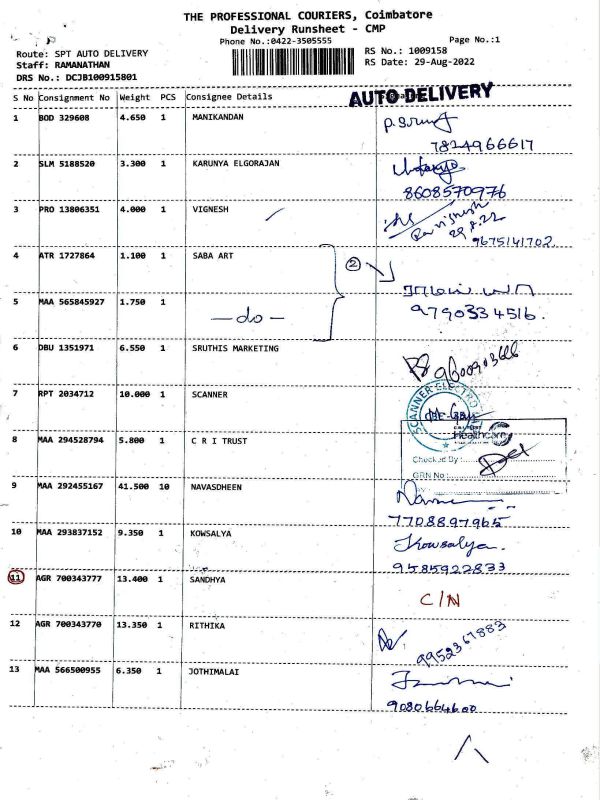 THE PROFESSIONAL COURIERS, Coimbatore
Delivery Runsheet - CMP
Phone No.:0422-3505555
Page No.:1
Route: SPT AUTO DELIVERY
Staff: RAMANATHAN
DRS No.: DCJB100915801
RS No.: 1009158
RS Date: 29-Aug-2022
S No Consignment No Weight PCS Consignee Details
AUTO DELIVERY
1 BOD 329608 4.650 1 MANIKANDAN
7824966617
2 SLM 5188520 3.300 1 KARUNYA ELGORAJAN
8608570976
3 PRO 13806351 4.000 1 VIGNESH
29.8.22
9675141702
4 ATR 1727864 1.100 1 SABA ART
②
5 MAA 565845927 1.750 1 —do—
9790334516.
6 DBU 1351971 6.550 1 SRUTHIS MARKETING
7 RPT 2034712 10.000 1 SCANNER
SCANNER ELECTRO
Healthcare
8 MAA 294528794 5.800 1 C R I TRUST
Checked By:
GRN No:
9 MAA 292455167 41.500 10 NAVASDHEEN
7708897965
10 MAA 293837152 9.350 1 KOWSALYA
Kowsalya.
9585922833
11 AGR 700343777 13.400 1 SANDHYA
C/N
12 AGR 700343770 13.350 1 RITHIKA
9952367883
13 MAA 566500955 6.350 1 JOTHIMALAI
9080664600